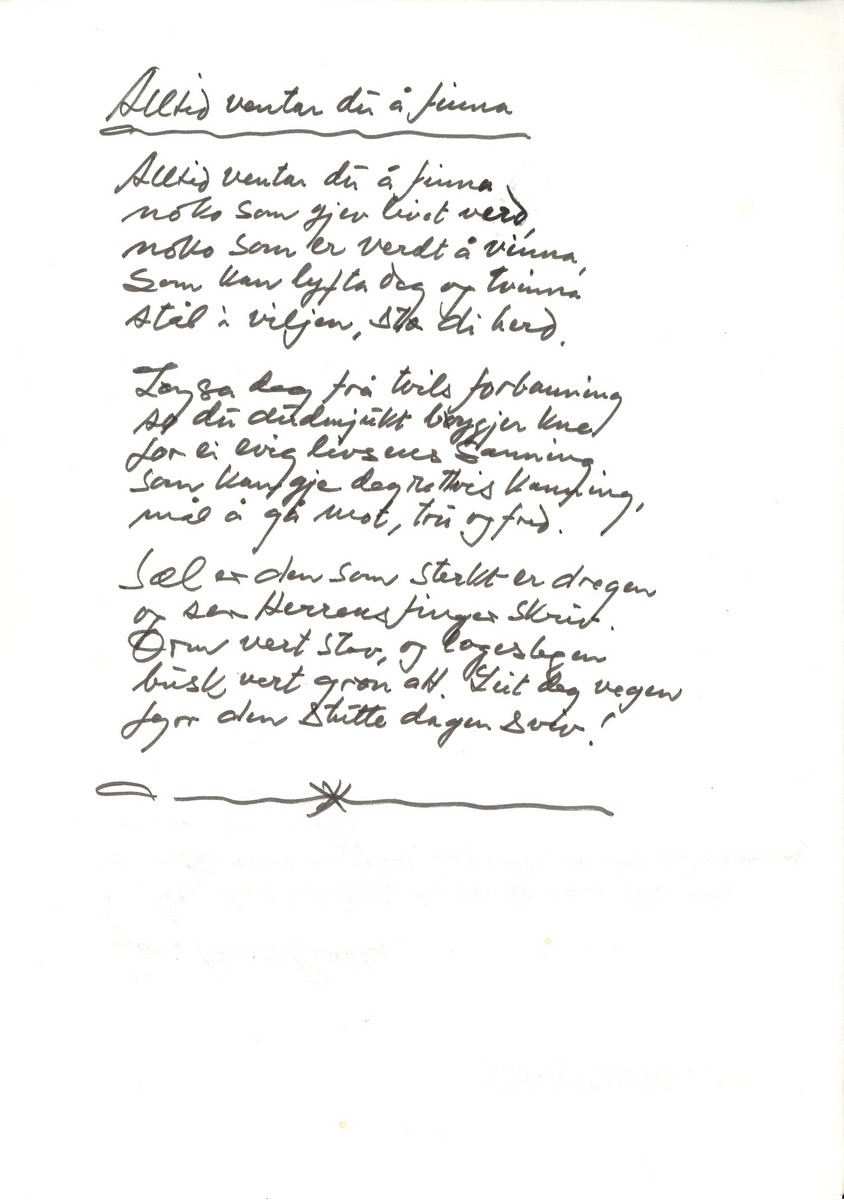 Alltid ventar du å finna
Alltid ventar du å finna
noko som gjev livet verd,
noko som er verdt å vinna,
som kan lyfta deg og tvinna
stål i viljen, stø di herd.
Løysa deg frå tvils forbanning
so du audmjukt bøygjer kne
for ei evig livsens Sanning
som kan gje deg rettvis kanning,
mål å gå mot, tru og fred.
Sæl er den som sterkt er dregen
og ser Herrens finger skriv.
Orm vert stav, og logeslegen
busk vert grøn att. Leit deg vegen
fyrr den stutte dagen sviv!